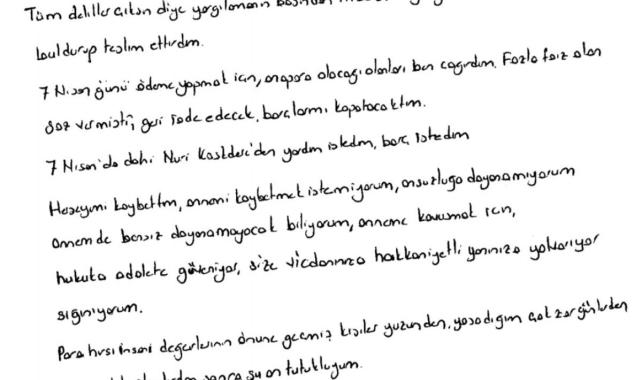 Tüm deliller çıksın diye yargılamanın başından
buldurup teslim ettirdim.
7 Nisan günü ödeme yapmak için, anapara alacağı olanları ben çağırdım. Fazla faiz alan
söz vermişti, geri iade edecek, borçlarımı kapatacaktım.
7 Nisan'da dahi Nuri Kasıderi'den yardım istedim, borç istedim
Herşeyimi kaybettim, annemi kaybetmek istemiyorum, onsuzluğa dayanamıyorum
annem de bensiz dayanamayacak biliyorum, anneme kavuşmak için,
hukuka adalete güveniyor, size vicdanınıza hakkaniyetli yanınıza yalvarıyor
sığınıyorum.
Para hırsı insani değerlerinin önüne geçmiş kişiler yüzünden, yaşadığım çok zor günlerden
sonra şu an tutukluyum.